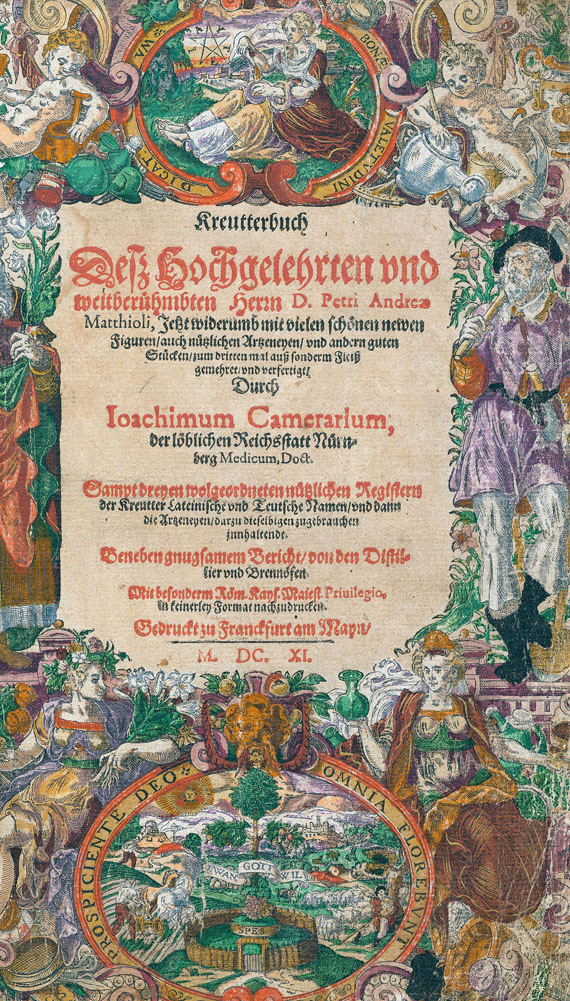 VIVAT
BONÆ
DICAT
VALETUDINI
Kreutterbuch
Deſz Hochgelehrten vnd
weitberühmbten Herrn D. Petri Andreæ
Matthioli, Jetzt widerumb mit vielen ſchönen newen
Figuren/auch nützlichen Artzeneyen/vnd andern guten
Stücken/zum dritten mal auß ſonderm Fleiß
gemehret/vnd verfertigt/
Durch
Ioachimum Camerarium,
der löblichen Reichsſtatt Nürn-
berg Medicum, Doct.
Sampt dreyen wolgeordneten nützlichen Regiſtern
der Kreutter Lateiniſche vnd Teutſche Namen/vnd dann
die Artzeneyen/darzu dieſelbigen zugebrauchen
innhaltendt.
Beneben gnugſamem Bericht/von den Diſtil-
lier vnd Brennöfen.
Mit beſonderm Röm. Kayſ. Maieſt. Priuilegio,
in keinerley Format nachzudrucken.
Gedruckt zu Franckfurt am Mayn/
M. DC. XI.
PROSPICIENTE DEO
OMNIA FLOREBVNT
WAN GOTT WIL
SPES